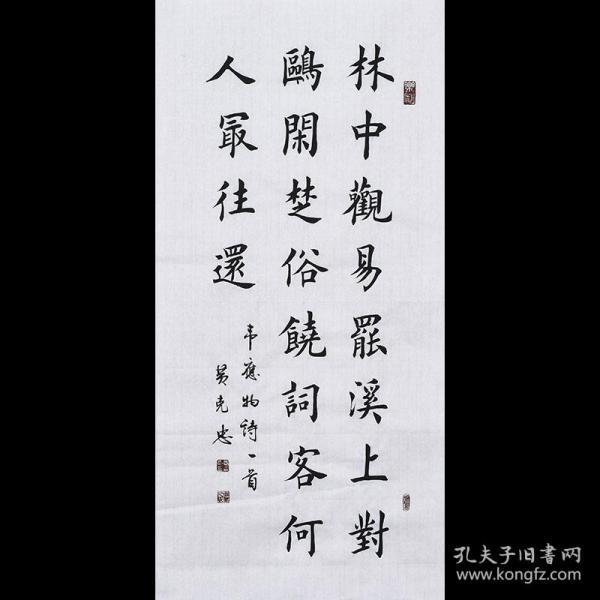 林中觀易罷溪上對
鷗閑楚俗饒詞客何
人冣往還
韦應物詩一首
黄克忠
孔夫子旧書网
www.kongfz.com